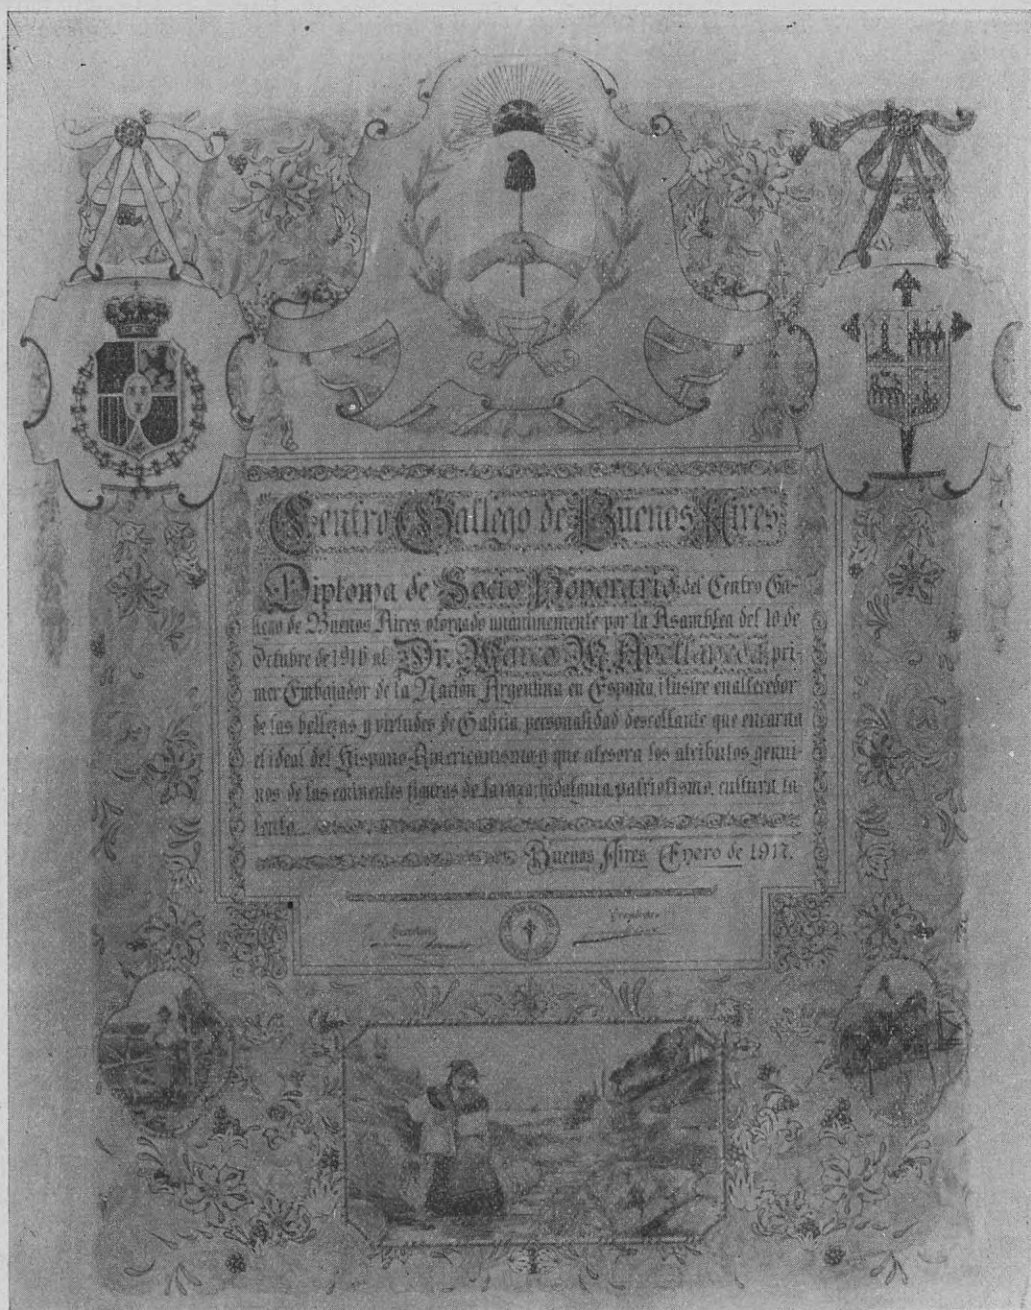 Centro Gallego de Buenos Aires
Diploma de Socio Honorario del Centro Ga-
llego de Buenos Aires otorgado unanimemente por la Asamblea del 10 de
Octubre de 1916 al Dr. Marco M. Avellaneda, pri-
mer Embajador de la Nación Argentina en España, ilustre enaltecedor
de las bellezas y virtudes de Galicia, personalidad descollante que encarna
el ideal del Hispano-Americanismo y que atesora los atributos genui-
nos de las eminentes figuras de la raza: hidalguia, patriotismo, cultura, ta-
lento
Buenos Aires Enero de 1917.